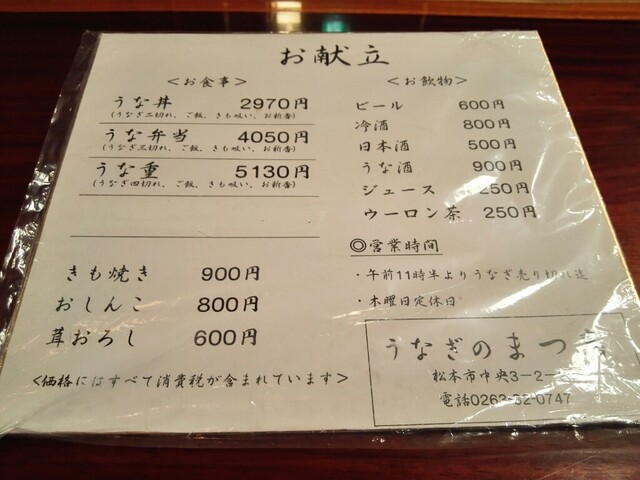 お献立
＜お食事＞
うな丼 2970円
(うなぎ二切れ、ご飯、きも吸い、お新香)
うな弁当 4050円
(うなぎ三切れ、ご飯、きも吸い、お新香)
うな重 5130円
(うなぎ四切れ、ご飯、きも吸い、お新香)
きも焼き 900円
おしんこ 800円
茸おろし 600円
＜価格にはすべて消費税が含まれています＞
＜お飲物＞
ビール 600円
冷酒 800円
日本酒 500円
うな酒 900円
ジュース 250円
ウーロン茶 250円
◎営業時間
・午前11時半よりうなぎ売り切れ迄
・木曜日定休日
うなぎのまつ
松本市中央3－2－
電話0263-32-0747